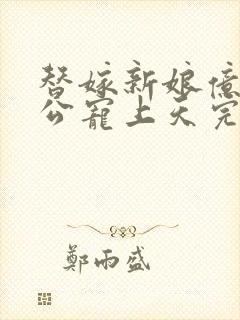 替嫁新娘億
公寵上天完
鄭雨盛